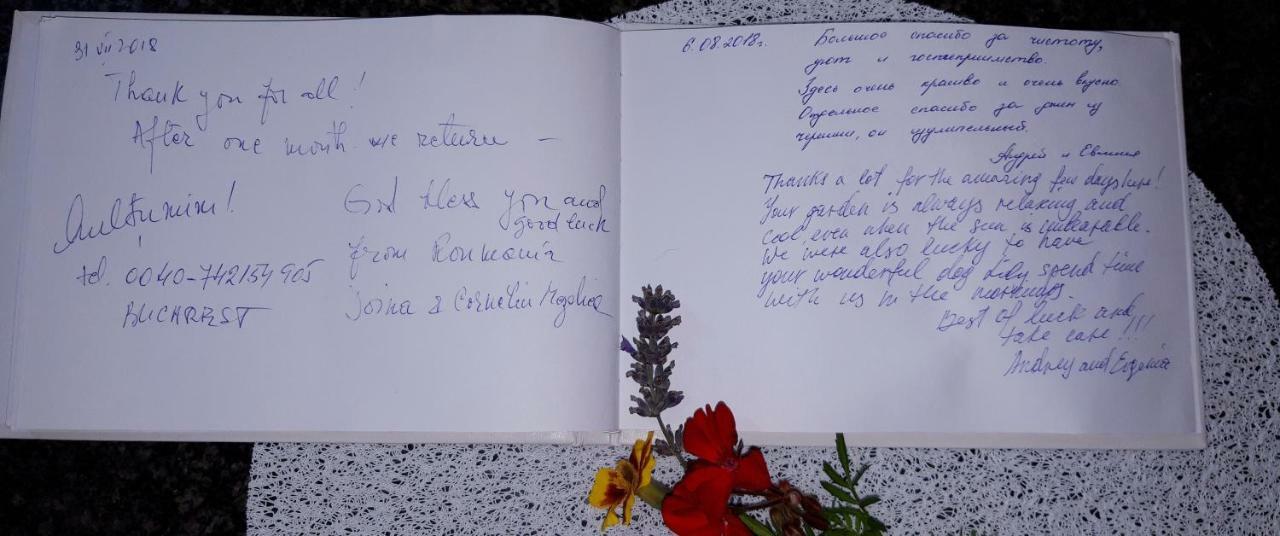 31 VII 2018
Thank you for all!
After one month we return –
Multumim!
tel. 0040-742154905
BUCHAREST
God bless you and
good luck
from Roumania
Joina & Corneliu
6.08.2018г.
Большое спасибо за чистоту,
уют и гостеприимство.
Здесь очень красиво и очень вкусно.
Отдельное спасибо за джем из
черешни, он удивительный.
Андрей и Евгения
Thanks a lot for the amazing few days here!
Your garden is always relaxing and
cool, even when the sun is unbearable.
We were also lucky to have
your wonderful dog spend time
with us in the mornings.
Best of luck and
take care!!!
Andrey and Evgenia